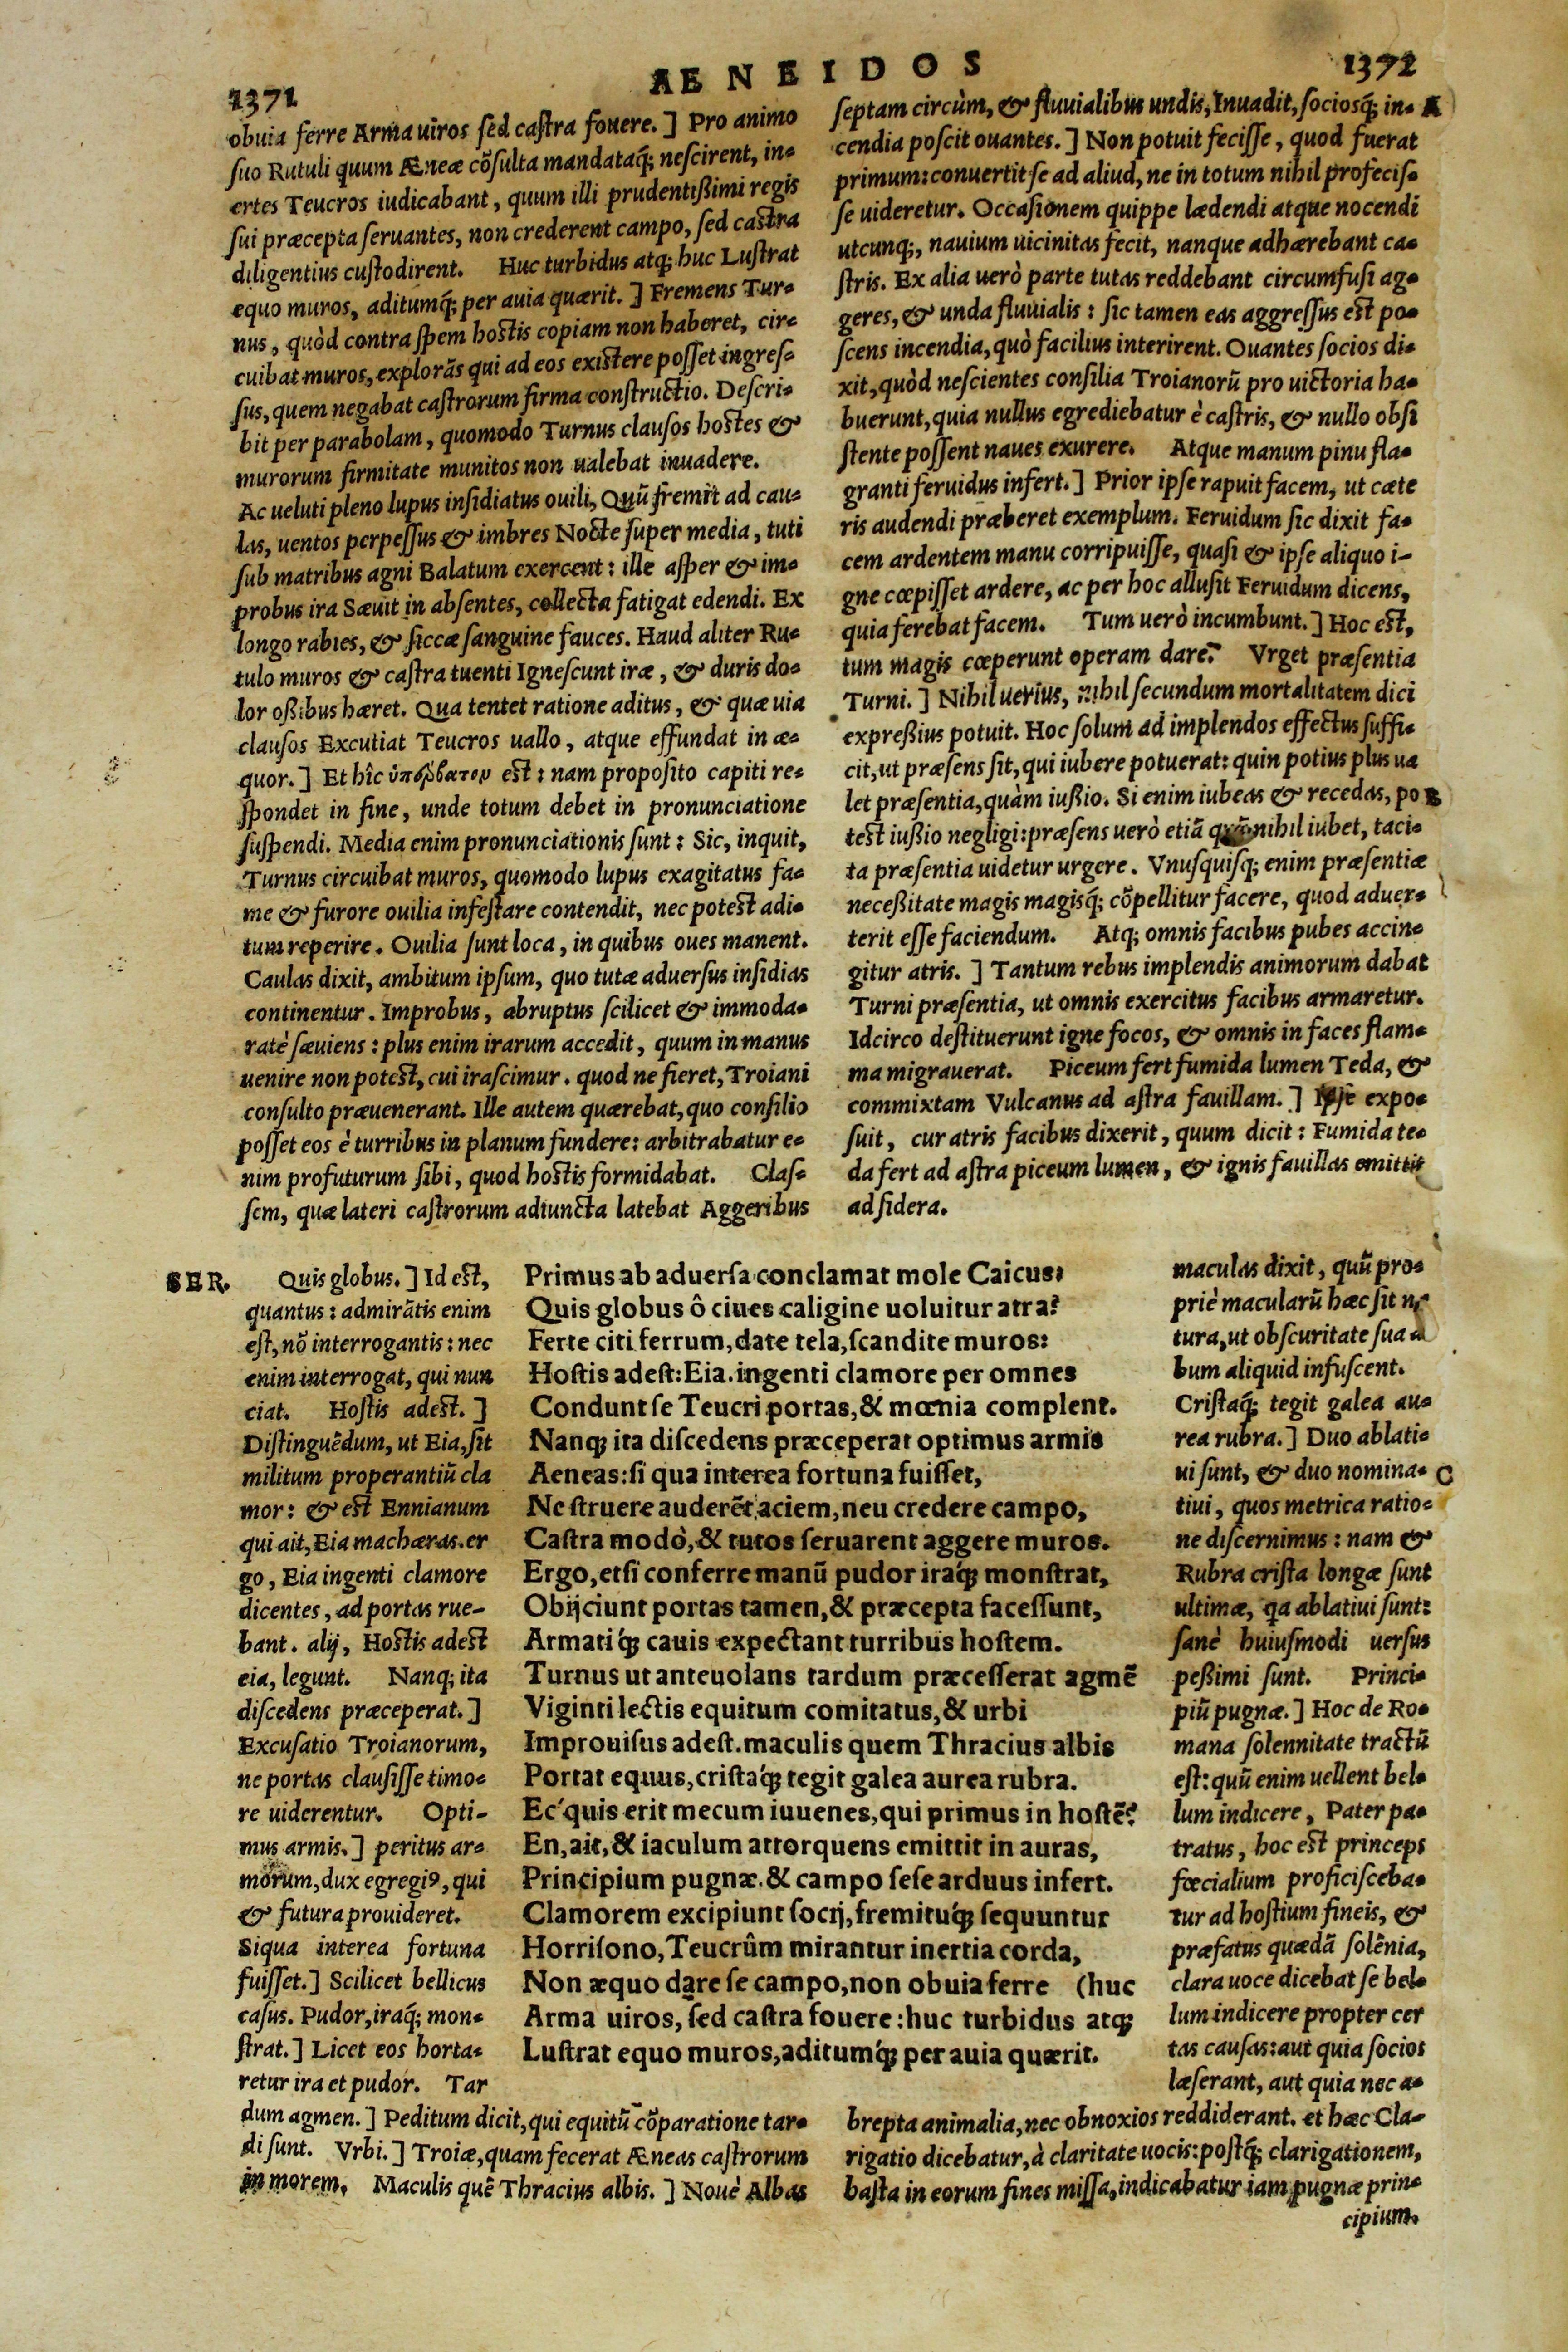 AENEIDOS
1371
obuia ferre Arma uiros sed castra fouere. ] Pro animo
suo Rutuli quum Æneæ cõsulta mandataq́; nescirent, in-
ertes Teucros iudicabant, quum illi prudentißimi regis
sui præcepta seruantes, non crederent campo, sed castra
diligentius custodirent. Huc turbidus atq; huc Lustrat
equo muros, aditumq́; per auia quærit. ] Fremens Tur-
nus, quòd contra spem hostis copiam non haberet, cir-
cuibat muros, explorãs qui ad eos existere posset ingres-
sus, quem negabat castrorum firma constructio. Descri-
bit per parabolam, quomodo Turnus clausos hostes &
murorum firmitate munitos non ualebat inuadere.
Ac ueluti pleno lupus insidiatus ouili, Quũ fremit ad cau-
las, uentos perpessus & imbres Nocte super media, tuti
sub matribus agni Balatum exercent: ille asper & im-
probus ira Sæuit in absentes, collecta fatigat edendi. Ex
longo rabies, & siccæ sanguine fauces. Haud aliter Ru-
tulo muros & castra tuenti Ignescunt iræ, & duris do-
lor oßibus hæret. Qua tentet ratione aditus, & quæ uia
clausos Excutiat Teucros uallo, atque effundat in æ-
quor. ] Et hîc ὑπέρβατον est: nam proposito capiti re-
spondet in fine, unde totum debet in pronunciatione
suspendi. Media enim pronunciationis sunt: Sic, inquit,
Turnus circuibat muros, quomodo lupus exagitatus fa-
me & furore ouilia infestare contendit, nec potest adi-
tum reperire. Ouilia sunt loca, in quibus oues manent.
Caulas dixit, ambitum ipsum, quo tutæ aduersus insidias
continentur. Improbus, abruptus scilicet & immoda-
ratè sæuiens: plus enim irarum accedit, quum in manus
uenire non potest, cui irascimur. quod ne fieret, Troiani
consulto præuenerant. Ille autem quærebat, quo consilio
posset eos è turribus in planum fundere: arbitrabatur e-
nim profuturum sibi, quod hostis formidabat. Clas-
sem, quæ lateri castrorum adiuncta latebat Aggeribus
1372
septam circùm, & fluuialibus undis, Inuadit, sociosq́; in- A
cendia poscit ouantes. ] Non potuit fecisse, quod fuerat
primum: conuertit se ad aliud, ne in totum nihil profecis-
se uideretur. Occasionem quippe lædendi atque nocendi
utcunq;, nauium uicinitas fecit, nanque adhærebant ca-
stris. Ex alia uerò parte tutas reddebant circumfusi ag-
geres, & unda fluuialis: sic tamen eas aggressus est po-
scens incendia, quò facilius interirent. Ouantes socios di-
xit, quòd nescientes consilia Troianorũ pro uictoria ha-
buerunt, quia nullus egrediebatur è castris, & nullo obsi
stente possent naues exurere. Atque manum pinu fla-
granti feruidus infert. ] Prior ipse rapuit facem, ut cæte
ris audendi præberet exemplum. Feruidum sic dixit fa-
cem ardentem manu corripuisse, quasi & ipse aliquo i-
gne cœpisset ardere, ac per hoc allusit Feruidum dicens,
quia ferebat facem. Tum uerò incumbunt. ] Hoc est,
tum magis cœperunt operam dare. Vrget præsentia
Turni. ] Nihil uerius, nihil secundum mortalitatem dici
expreßius potuit. Hoc solum ad implendos effectus suffi-
cit, ut præsens sit, qui iubere potuerat: quin potius plus ua
let præsentia, quàm iußio. Si enim iubeas & recedas, po B
test iußio negligi: præsens uerò etiã nihil iubet, taci-
ta præsentia uidetur urgere. Vnusquisq; enim præsentiæ
neceßitate magis magisq́; cõpellitur facere, quod aduer-
terit esse faciendum. Atq; omnis facibus pubes accin-
gitur atris. ] Tantum rebus implendis animorum dabat
Turni præsentia, ut omnis exercitus facibus armaretur.
Idcirco destituerunt igne focos, & omnis in faces flam-
ma migrauerat. Piceum fert fumida lumen Teda, &
commixtam Vulcanus ad astra fauillam. ] Ipse expo-
suit, cur atris facibus dixerit, quum dicit: Fumida te-
da fert ad astra piceum lumen, & ignis fauillas emittit
ad sidera.
SER.
Quis globus. ] Id est,
quantus: admirãtis enim
est, nõ interrogantis: nec
enim interrogat, qui nun
ciat. Hostis adest. ]
Distinguẽdum, ut Eia, sit
militum properantiũ cla
mor: & est Ennianum
qui ait, Eia machæras. er
go, Eia ingenti clamore
dicentes, ad portas rue-
bant. alij, Hostis adest
eia, legunt. Nanq; ita
discedens præceperat. ]
Excusatio Troianorum,
ne portas clausisse timo-
re uiderentur. Opti-
mus armis. ] peritus ar-
morum, dux egregiꝰ, qui
& futura prouideret.
Siqua interea fortuna
fuisset. ] Scilicet bellicus
casus. Pudor, iraq́; mon-
strat. ] Licet eos horta-
retur ira et pudor. Tar
dum agmen. ] Peditum dicit, qui equitũ cõparatione tar-
di sunt. Vrbi. ] Troiæ, quam fecerat Æneas castrorum
in morem. Maculis quẽ Thracius albis. ] Nouè Albas
Primus ab aduersa conclamat mole Caicus:
Quis globus ô ciues caligine uoluitur atra?
Ferte citi ferrum, date tela, scandite muros:
Hostis adest: Eia. ingenti clamore per omnes
Condunt se Teucri portas, & mœnia complent.
Nanq; ita discedens præceperat optimus armis
Aeneas: si qua interea fortuna fuisset,
Ne struere auderẽt aciem, neu credere campo,
Castra modò, & tutos seruarent aggere muros.
Ergo, etsi conferre manũ pudor iraq́; monstrat,
Obijciunt portas tamen, & præcepta facessunt,
Armatiq́; cauis expectant turribus hostem.
Turnus ut anteuolans tardum præcesserat agmẽ
Viginti lectis equitum comitatus, & urbi
Improuisus adest. maculis quem Thracius albis
Portat equus, cristaq́; tegit galea aurea rubra.
Ec'quis erit mecum iuuenes, qui primus in hostẽ?
En, ait, & iaculum attorquens emittit in auras,
Principium pugnæ. & campo sese arduus infert.
Clamorem excipiunt socij, fremituq́; sequuntur
Horrisono, Teucrûm mirantur inertia corda,
Non æquo dare se campo, non obuia ferre (huc
Arma uiros, sed castra fouere: huc turbidus atq;
Lustrat equo muros, aditumq́; per auia quærit.
maculas dixit, quũ pro-
priè macularũ hæc sit
tura, ut obscuritate sua
bum aliquid infuscent.
Cristaq́; tegit galea au-
rea rubra. ] Duo ablati-
ui sunt, & duo nomina- C
tiui, quos metrica ratio-
ne discernimus: nam &
Rubra crista longæ sunt
ultimæ, q̃a ablatiui sunt:
sanè huiusmodi uersus
peßimi sunt. Princi-
piũ pugnæ. ] Hoc de Ro-
mana solennitate tractũ
est: quũ enim uellent bel-
lum indicere, Pater pa-
tratus, hoc est princeps
fœcialium proficisceba-
tur ad hostium fineis, &
præfatus quædã solẽnia,
clara uoce dicebat se bel-
lum indicere propter cer
tas causas: aut quia socios
læserant, aut quia nec a-
brepta animalia, nec obnoxios reddiderant. et hæc Cla-
rigatio dicebatur, à claritate uocis: postq́; clarigationem,
hasta in eorum fines missa, indicabatur iam pugnæ prin-
cipium.